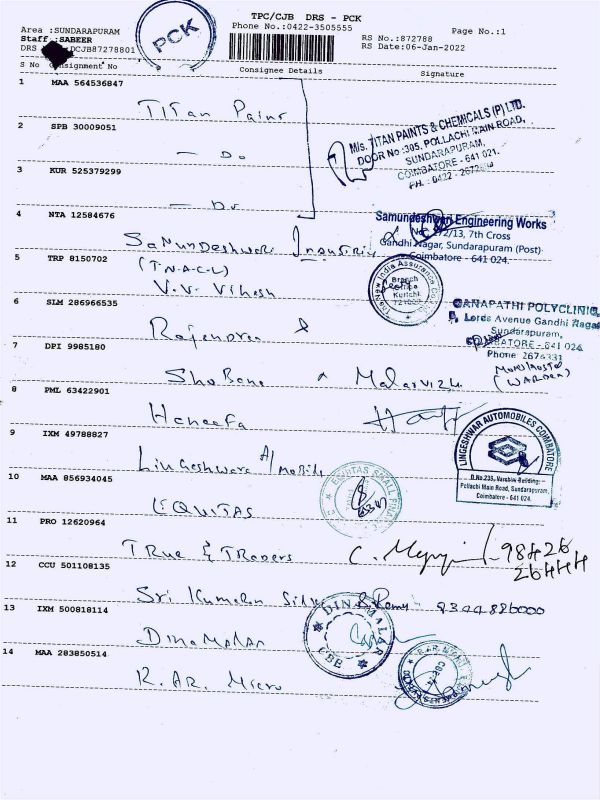 TPC/CJB DRS - PCK
Phone No.:0422-3505555
Page No.:1
Area :SUNDARAPURAM
Staff :SABEER
DRS :DCJB87278801
RS No.:872788
RS Date:06-Jan-2022
PCK
S No Consignment No Consignee Details Signature
1 MAA 564536847
Titan Paint
2 SPB 30009051
- Do
3 KUR 525379299
- Do
M/s. TITAN PAINTS & CHEMICALS (P) LTD.
DOOR No :305, POLLACHI MAIN ROAD,
SUNDARAPURAM,
COIMBATORE - 641 021.
PH : 0422 -
4 NTA 12584676
Samundeshwari
Samundeshwari Engineering Works
7th Cross
Gandhi Nagar, Sundarapuram (Post)
Coimbatore - 641 024.
5 TRP 8150702
(T.N.A.C.L)
V.V. Vihesh
The New India Assurance Co.
Branch
Office
Kurichi
6 SLM 286966535
Rajendran
GANAPATHI POLYCLINIC
Lords Avenue Gandhi Nagar
Sundarapuram,
COIMBATORE - 641 024
Phone 2674331
(WARDEN)
7 DPI 9985180
Shobana Malarvizhi
8 PML 63422901
Haneefa
9 IXM 49788827
Lingeshwara A/Mobile
LINGESHWAR AUTOMOBILES COIMBATORE
Pollachi Main Road, Sundarapuram,
Coimbatore - 641 024.
10 MAA 856934045
EQUITAS
EQUITAS SMALL FINANCE
11 PRO 12620964
True & Traders
98426
26444
12 CCU 501108135
Sri Kumaran Silks 9344886000
13 IXM 500818114
Dinamalar
DINAMALAR
CBE
14 MAA 283850514
R. AR. Micro